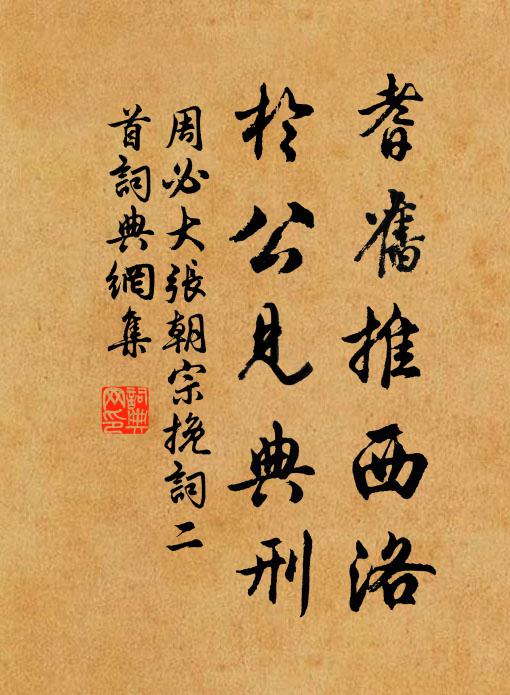 耆舊推西洛
於公見典刑
周必大張朝宗挽詞二
首詞典網集
詞典
网印